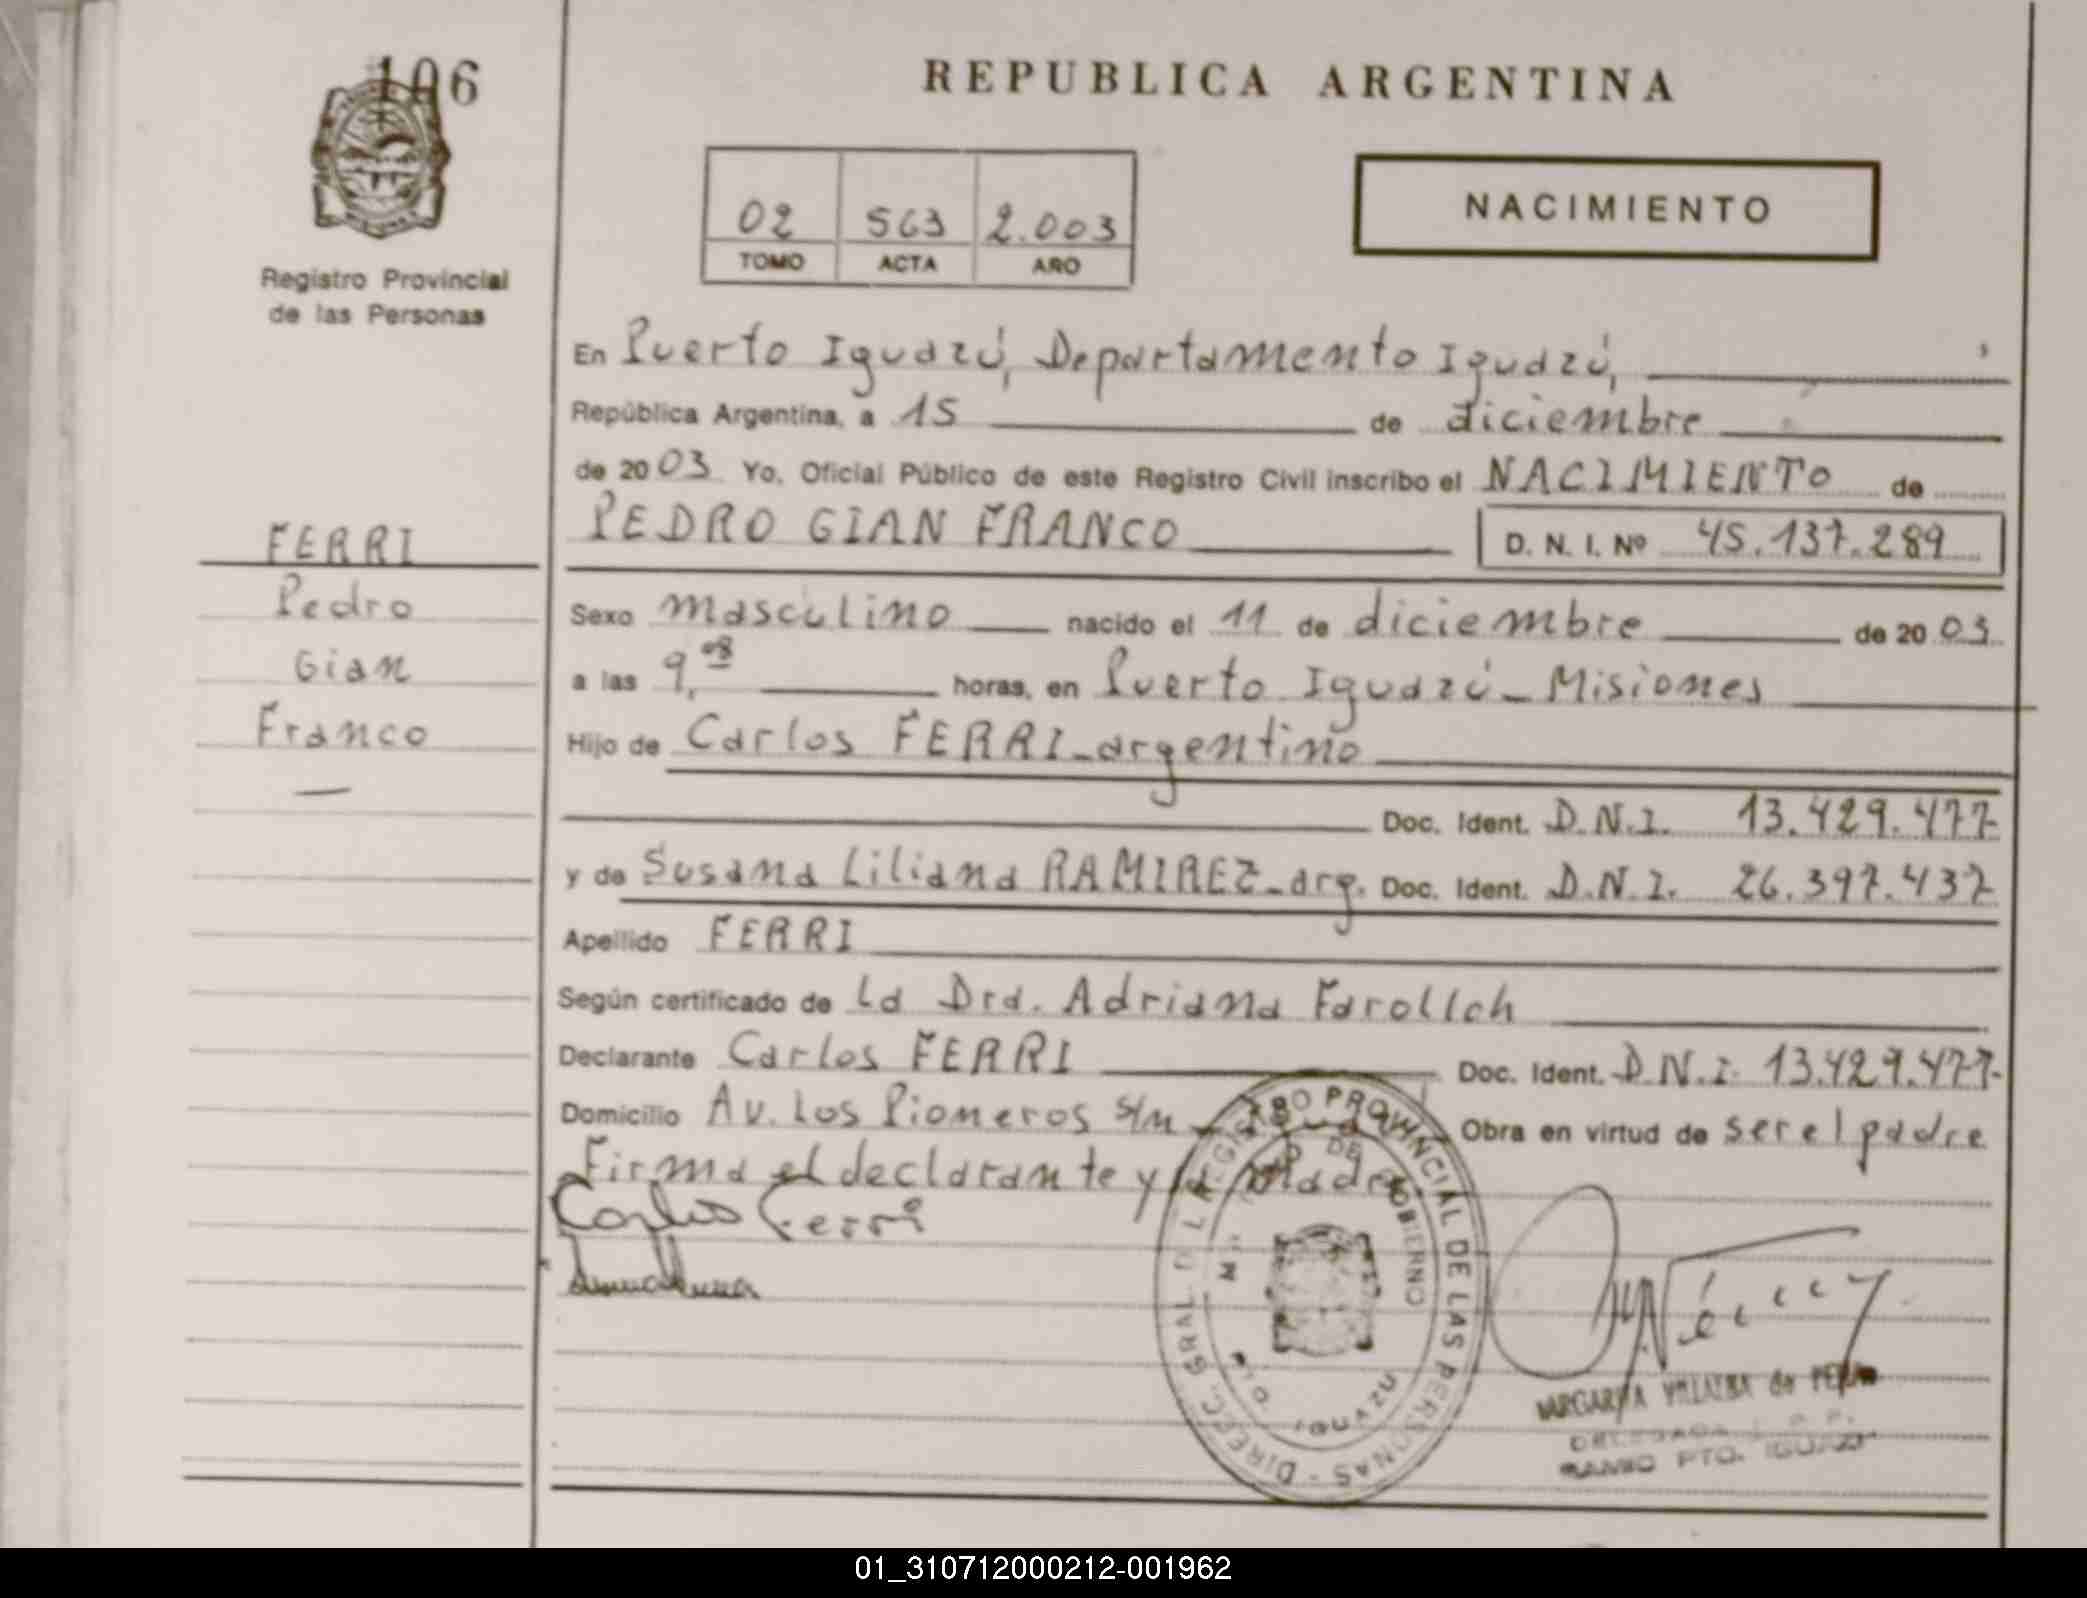 106
REPUBLICA ARGENTINA
02 563 2.003
TOMO ACTA AÑO
NACIMIENTO
Registro Provincial
de las Personas
En Puerto Iguazú, Departamento Iguazú,
República Argentina, a 15 de diciembre
de 2003 Yo, Oficial Público de este Registro Civil inscribo el NACIMIENTO de
PEDRO GIAN FRANCO D. N. I. Nº 45.137.289
FERRI
Pedro
Gian
Franco
Sexo masculino nacido el 11 de diciembre de 2003
a las 9,08 horas, en Puerto Iguazú - Misiones
Hijo de Carlos FERRI - argentino
Doc. Ident. D.N.I. 13.429.477
y de Susana Liliana RAMIREZ - arg. Doc. Ident. D.N.I. 26.397.437
Apellido FERRI
Según certificado de La Dra. Adriana
Declarante Carlos FERRI Doc. Ident. D.N.I. 13.429.477-
Domicilio Av. Los Pioneros s/n Obra en virtud de ser el padre
Firma el declarante y la Madre
Carlos Ferri
DIRECC. GRAL DEL REGISTRO PROVINCIAL DE LAS PERSONAS
DE GOBIERNO
IGUAZU
MARGARITA VILLALBA de
DELEGADA
PTO. IGUAZU
01_310712000212-001962